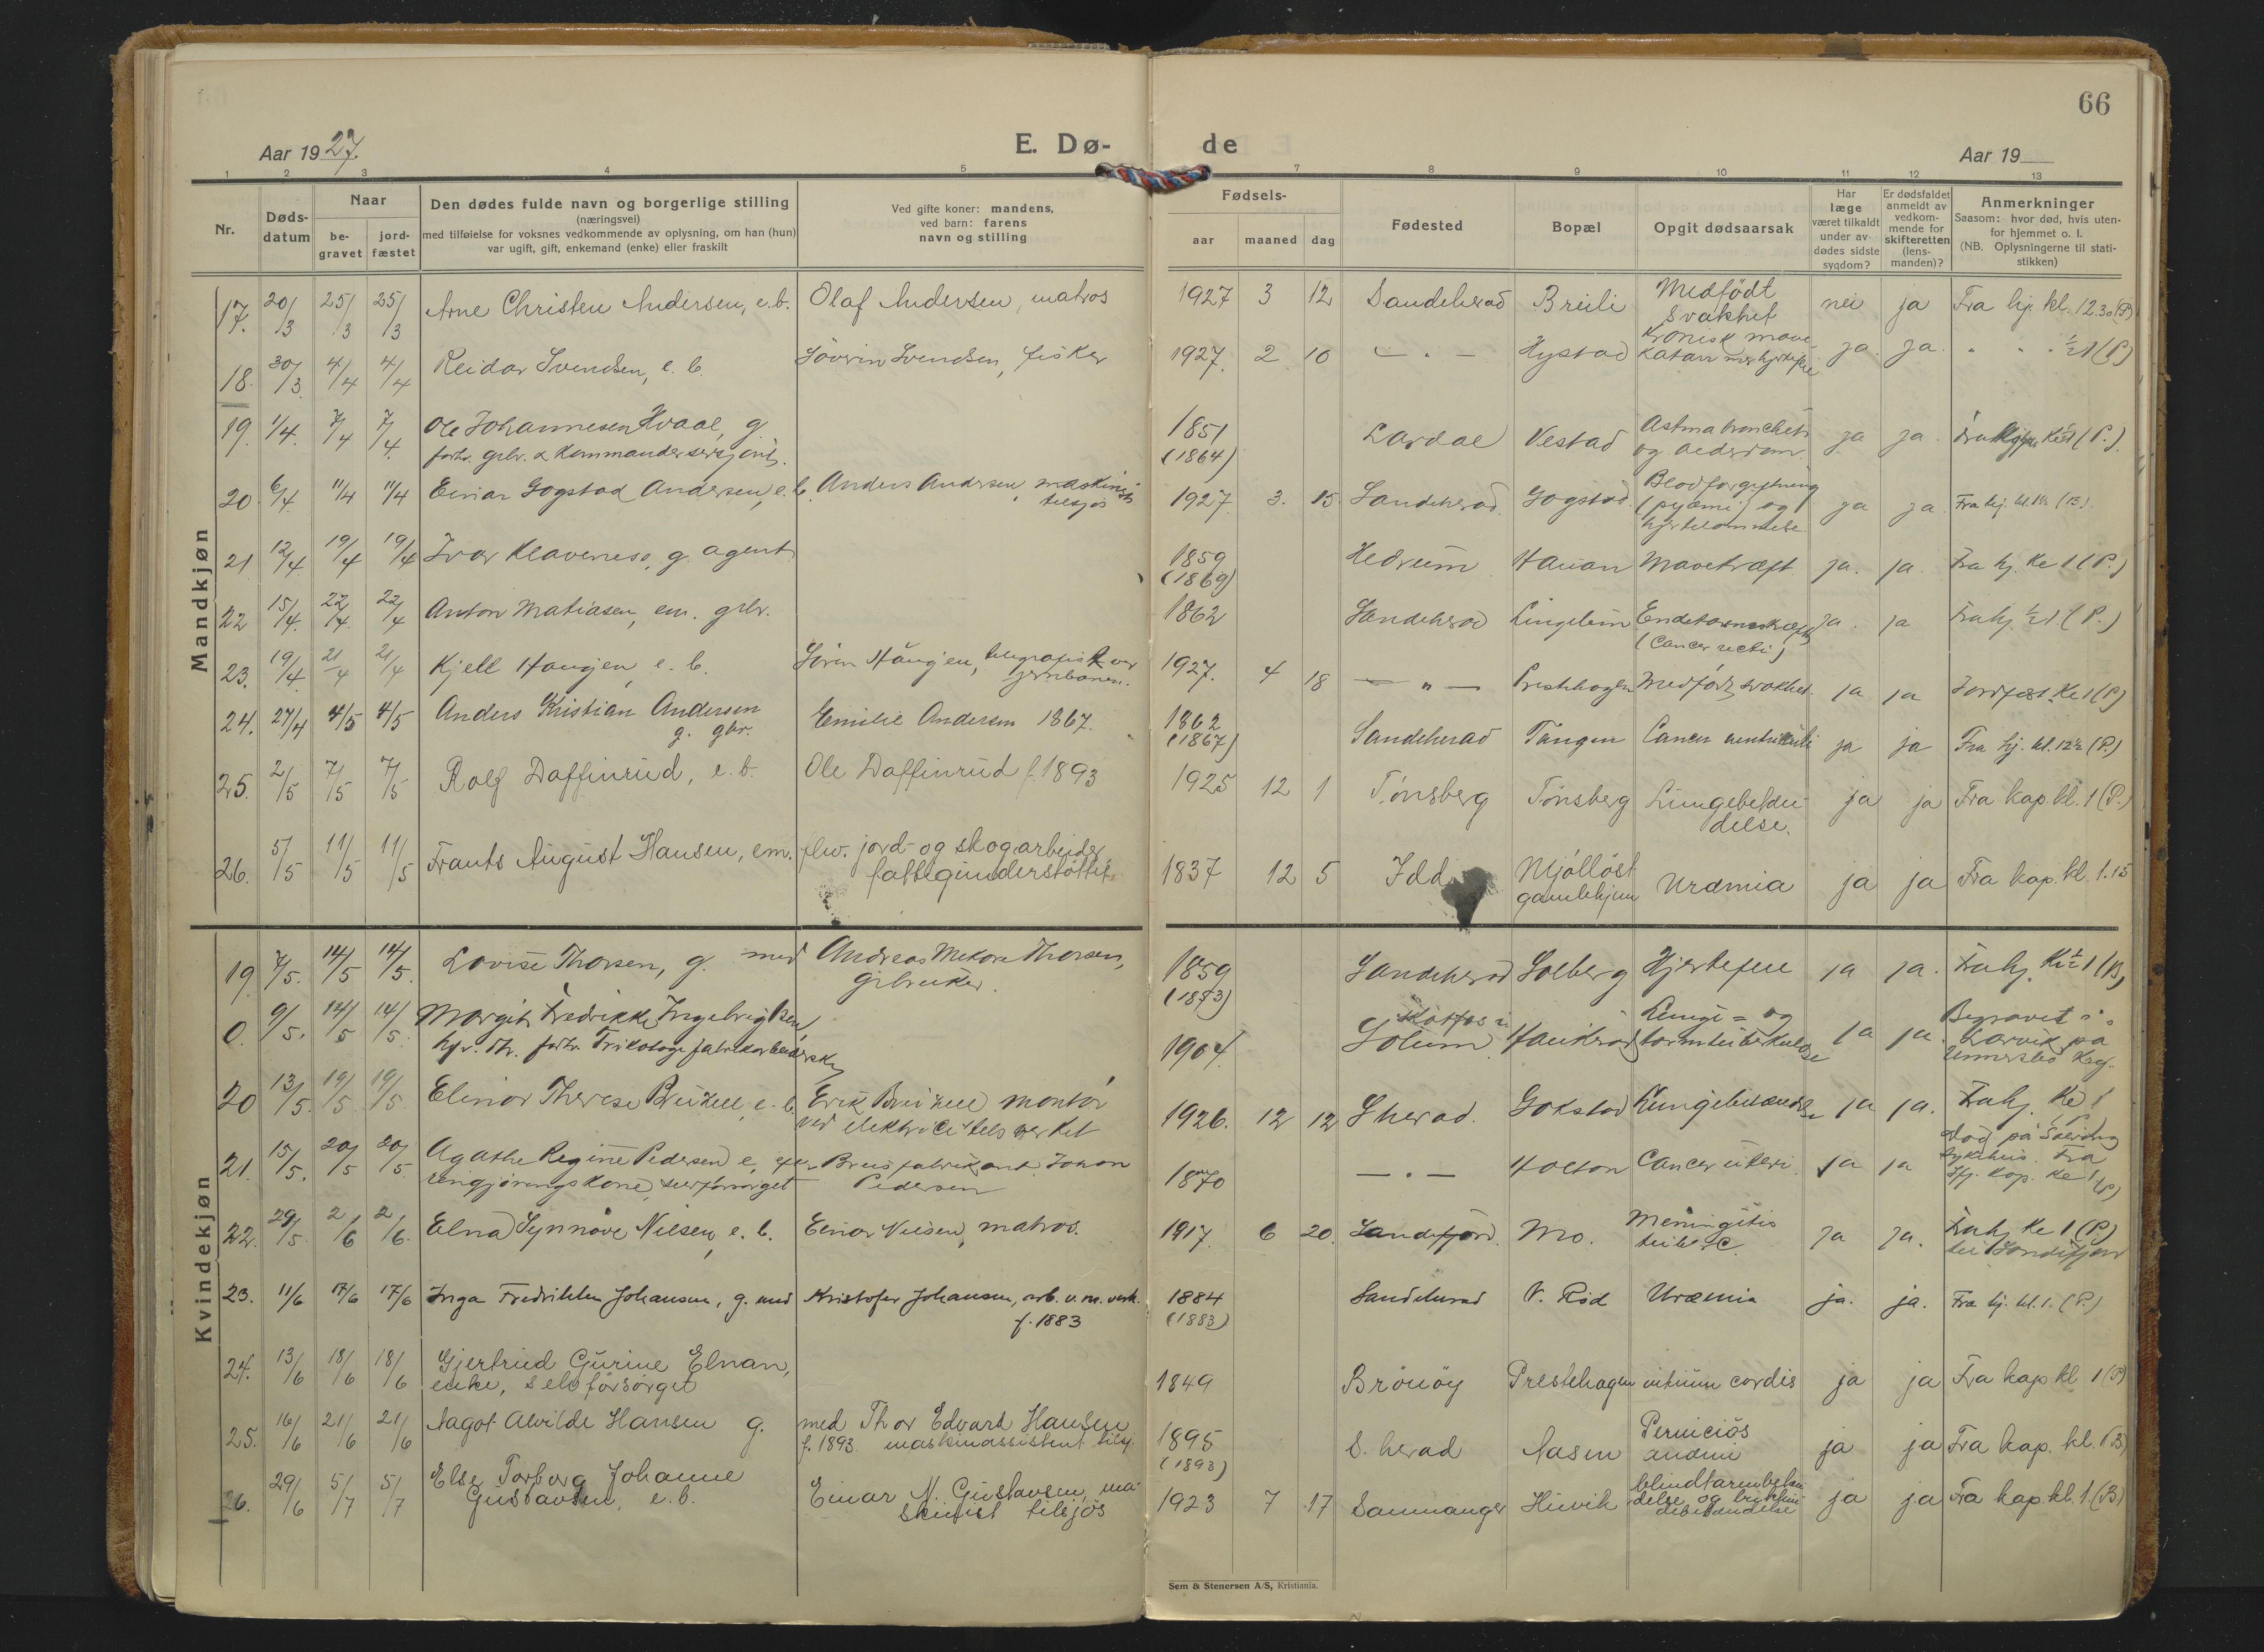 66
Aar 1927.
E. Dø-
de
Aar 19
1 2 3 4 5
7 8 9 10 11 12 13
Nr.
Døds-
datum
Naar
be-
gravet
jord-
fæstet
Den dødes fulde navn og borgerlige stilling
(næringsvei)
med tilføielse for voksnes vedkommende av oplysning, om han (hun)
var ugift, gift, enkemand (enke) eller fraskilt
Ved gifte koner: mandens,
ved barn: farens
navn og stilling
Fødsels-
aar maaned dag
Fødested
Bopæl
Opgit dødsaarsak
Har
læge
været tilkaldt
under av-
dødes sidste
sygdom?
Er dødsfaldet
anmeldt av
vedkom-
mende for
skifteretten
(lens-
manden)?
Anmerkninger
Saasom: hvor død, hvis uten-
for hjemmet o. l.
(NB. Oplysningerne til stati-
stikken)
Mandkjøn
17. 20/3 25/3 25/3 Arne Christen Andersen, e.b. Olaf Andersen, matros 1927 3 12 Sandeherad Breili Medfödt
svakhet nei ja Fra hj. kl. 12.30 (P)
18. 30/3 4/4 4/4 Reidar Svendsen, e. b. Sövrin Svendsen, fisker 1927. 2 10 — " — Hystad Kronisk mave-
katarr ja. ja. " " ½1 (P)
19. 1/4. 7/4 7/4. Ole Johannesen Hvaal, g.
forhv. grbr. & Kommandersersjant. 1851
(1864) Lardal Vestad Astma bronchit
og ja ja. (P.).
20. 6/4 11/4 11/4 Einar Gogstad Andersen, e. b. Anders Andersen, maskinist
tilsjøs 1927 3. 15 Sandeherad. Gogstad. Blodforgiftning
(pyæmi) og
hjertelammelse. ja ja Fra hj. kl. (B).
21 12/4 19/4 19/4 Ivar Klaveness, g. agent 1859
(1869) Hedrum Hauan Mavekræft. ja. ja. Fra hj. kl 1 (P.)
22 15/4. 22/4. 22/4 Anton Matiasen, em. grbr. 1862 Sandeherad Lingelem Endetarmskræft
(Cancer recti) ja. ja Fra hj. ½1 (P.)
23. 19/4. 21/4 21/4 Kjell Haugen, e. b. Sören Haugen, telegrafist ver
jernbanen. 1927. 4 18 — " — Prestehagen Medfödt svakhet. ja ja Jordfæst. Kl 1 (P)
24. 27/4 4/5 4/5 Anders Kristian Andersen
g. gbr. Emilie Andersen 1867. 1862
(1867) Sandeherad Tangen Cancer ventriculi ja ja Fra hj. kl. 12½ (P.)
25. 2/5 7/5 7/5 Rolf Daffinrud, e. b. Ole Daffinrud f. 1893 1925 12 1 Tönsberg Tönsberg Lungebetæn-
delse. ja ja Fra kap. kl. 1 (P.)
26. 5/5 11/5 11/5 Frants August Hansen, em. jord- og skogarbeider
fattigunderstöttet. 1837 12 5 Idd Mjöllöst
gamlehjem Uræmia ja ja Fra kap. kl. 1.15
Kvindekjøn
19. 7/5. 14/5 14/5. Lovise Thorsen, g. med Andreas Thorsen,
grbruker. 1859
(1853) Sandeherad Solberg Hjertefeil ja ja. Fra hj. Kl ½1 (B)
0. 9/5. 14/5 14/5. Margit Fredrikke Ingebrigtsen,
forhv. Trikotagefabrikarbeiderske 1904. Kotfos i
Solum Haukerød Lunge- og
tarmtuberkulose ja ja. Begravet i
Larvik på
Undersbo kag.
20 13/5. 19/5 19/5. Elinor Therese e. b. Erik montör
ved elektricitetsverket 1926. 12 12 S.herad. Gokstad Lungebetændelse ja ja. Fra hj. Kl 1
(P.)
21. 15/5. 20/5 20/5. Agathe Regine Pedersen e. efter
rengjöringskone, selvforsörget Brusfabrikant Johan
Pedersen 1870 — " — Holton Cancer uteri. ja ja Död på
sykehus. Fra
Hj. kap. Kl 1 (P)
22. 29/5 2/6 2/6. Elna Synnöve Nilsen, e. b. Einar Nilsen, matros. 1917. 6 20. Sandefjord. Mo. Meningitis
tuberc. ja ja. Fra hj. Kl 1 (P.)
til Sandefjord
23. 11/6 17/6 17/6 Inga Fredrikken Johansen, g. med Kristofer Johansen, arb. v. m. verk.
f. 1883 1884
(1883) Sandeherad V. Röd Uræmia ja. ja. Fra hj. kl. 1. (P.)
24. 13/6 18/6 18/6 Gjertrud Gurine Elnan,
enke, selvforsörget 1849 Brönöy Prestehagen vitium cordis ja ja Fra kap kl 1 (P)
25. 16/6 21/6 21/6 Aagot Alvilde Hansen g. med Thor Edvard Hansen
f. 1893 maskinassistent tilsj. 1895
(1893) S. herad Aasen Perniciös
anæmi ja ja Fra kap. kl. 1 (B)
26. 29/6 5/7 5/7 Else Torborg Johanne
Gustavsen, e. b. Einar N. Gustavsen, ma-
skinist tilsjös 1923 7 17 Samnanger Huvik blindtarmbetæn-
delse og
betændelse ja ja Fra kap. kl. 1. (B.)
Sem & Stenersen A/S, Kristiania.